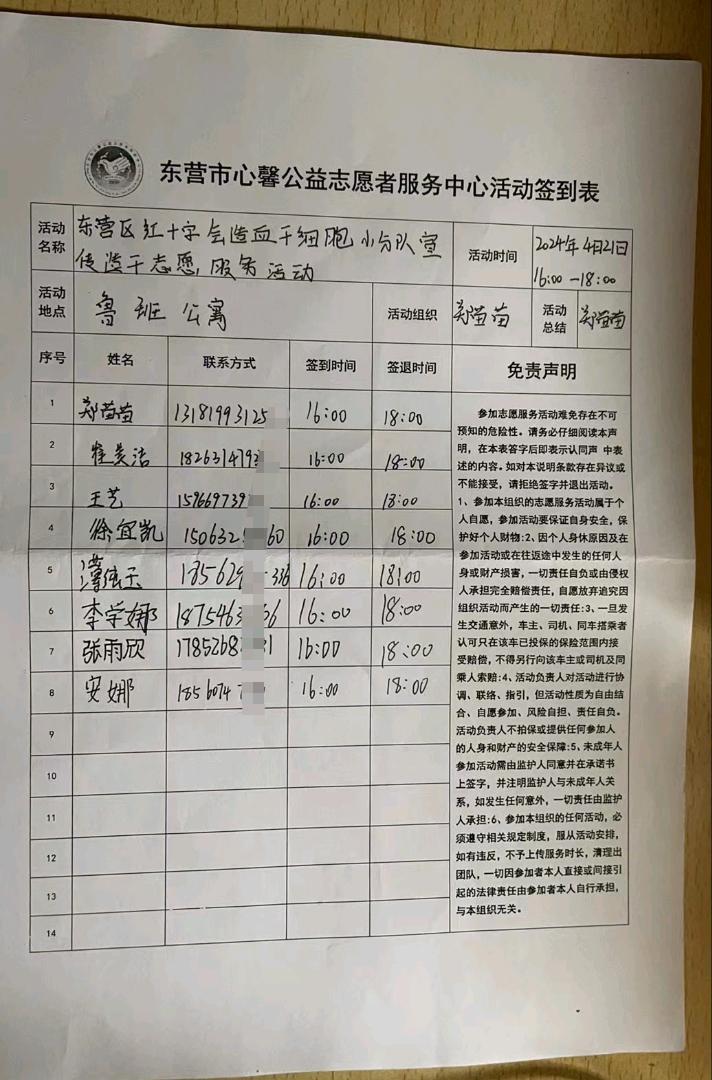 东营市心馨公益志愿者服务中心活动签到表
活动名称 东营区红十字会造血干细胞小分队宣传造干志愿服务活动 活动时间 2024年4月21日 16:00-18:00
活动地点 鲁班公寓 活动组织 郑苗苗 活动总结 郑苗苗
序号 姓名 联系方式 签到时间 签退时间 免责声明
1 郑苗苗 13181993125 16:00 18:00
2 崔美洁 182631479 16:00 18:00
3 王艺 159669739 16:00 18:00
4 徐宜凯 150632 60 16:00 18:00
5 185629 336 16:00 18:00
6 李学娜 1875463 66 16:00 18:00
7 张雨欣 17852682 1 16:00 18:00
8 安娜 1856074 16:00 18:00
9
10
11
12
13
14
参加志愿服务活动难免存在不可
预知的危险性。请务必仔细阅读本声
明，在本表答字后即表示认同声 中表
述的内容。如对本说明条款存在异议或
不能接受，请拒绝签字并退出活动。
1、参加本组织的志愿服务活动属于个
人自愿，参加活动要保证自身安全，保
护好个人财物:2、因个人身休原因及在
参加活动或在往返途中发生的任何人
身或财产损害，一切责任自负或由侵权
人承担完全赔偿责任，自愿放弃追究因
组织活动而产生的一切责任:3、一旦发
生交通意外，车主、司机、同车搭乘者
认可只在该车已投保的保险范围内接
受赔偿，不得另行向该车主或司机及同
乘人索赔:4、活动负责人对活动进行协
调、联络、指引，但活动性质为自由结
合、自愿参加、风险自担、责任自负。
活动负责人不拍保或提供任何参加人
的人身和财产的安全保障:5、未成年人
参加活动需由监护人同意并在承诺书
上签字，并注明监护人与未成年人关
系，如发生任何意外，一切责任由监护
人承担:6、参加本组织的任何活动，必
须遵守相关规定制度，服从活动安排，
如有违反，不予上传服务时长，清理出
团队，一切因参加者本人直接或间接引
起的法律责任由参加者本人自行承担，
与本组织无关。